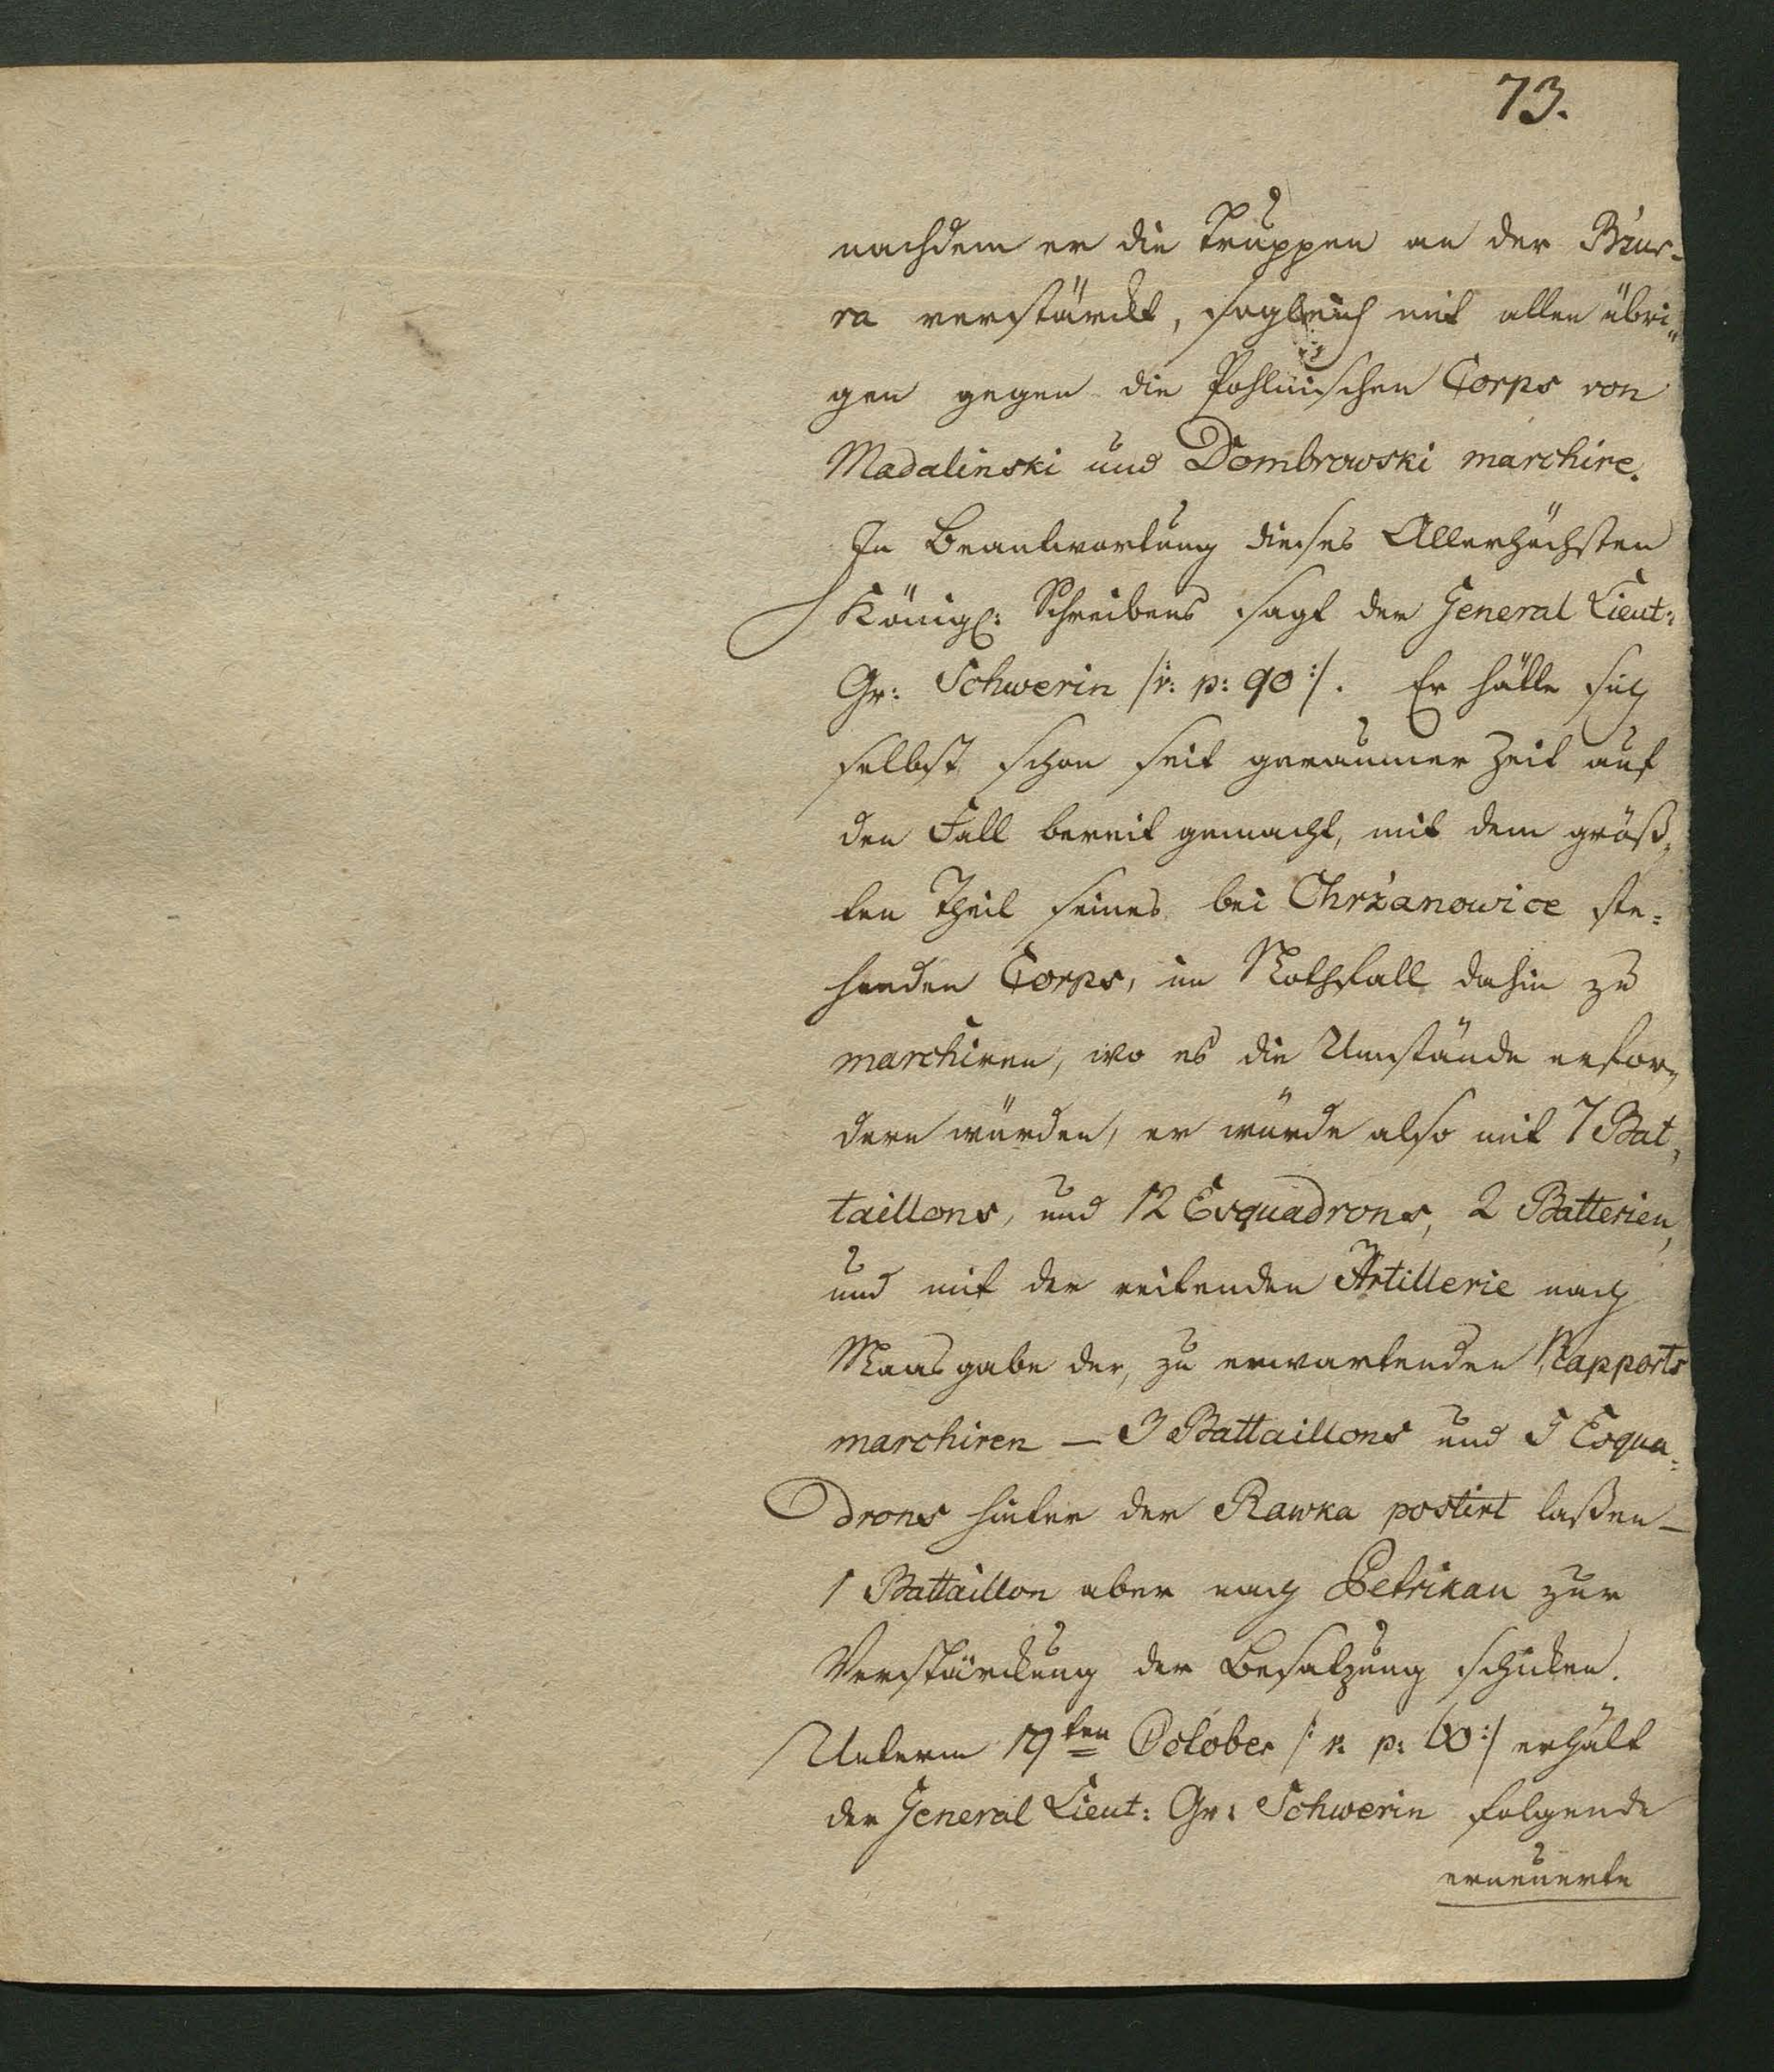 73.
nachdem er die Truppen an der Bzur-
ra verstärckt, sogleich mit allen übri„
gen gegen die Pohlnischen Corps von
Madalinski und Dombrowski marchire.
In Beantwortung dieses Allerhöchsten
Königl: Schreibens sagt der General Lieut:
Gr: Schwerin /: v: p: 90 :/. Er hätte sich
selbst schon seit geraumer Zeit auf
den Fall bereit gemacht, mit dem größ„
ten Theil seines bei Chrzanowice ste=
henden Corps, im Nothfall dahin zu
marchiren, wo es die Umstände erfor„
dern würden, er würde also mit 7 Bat„
taillons, und 12 Esquadrons, 2 Batterien,
und mit der reitenden Artillerie nach
Maasgabe der, zu erwartenden Rapports
marchiren — 3 Battaillons und 5 Esqua=
drons hinter der Rawka postirt laßen —
1 Battaillon aber nach Petrikau zur
Verstärckung der Besatzung schicken.
Unterm 19ten October /: v: p: 60 :/ erhält
der General Lieut: Gr: Schwerin folgende
erneuerte